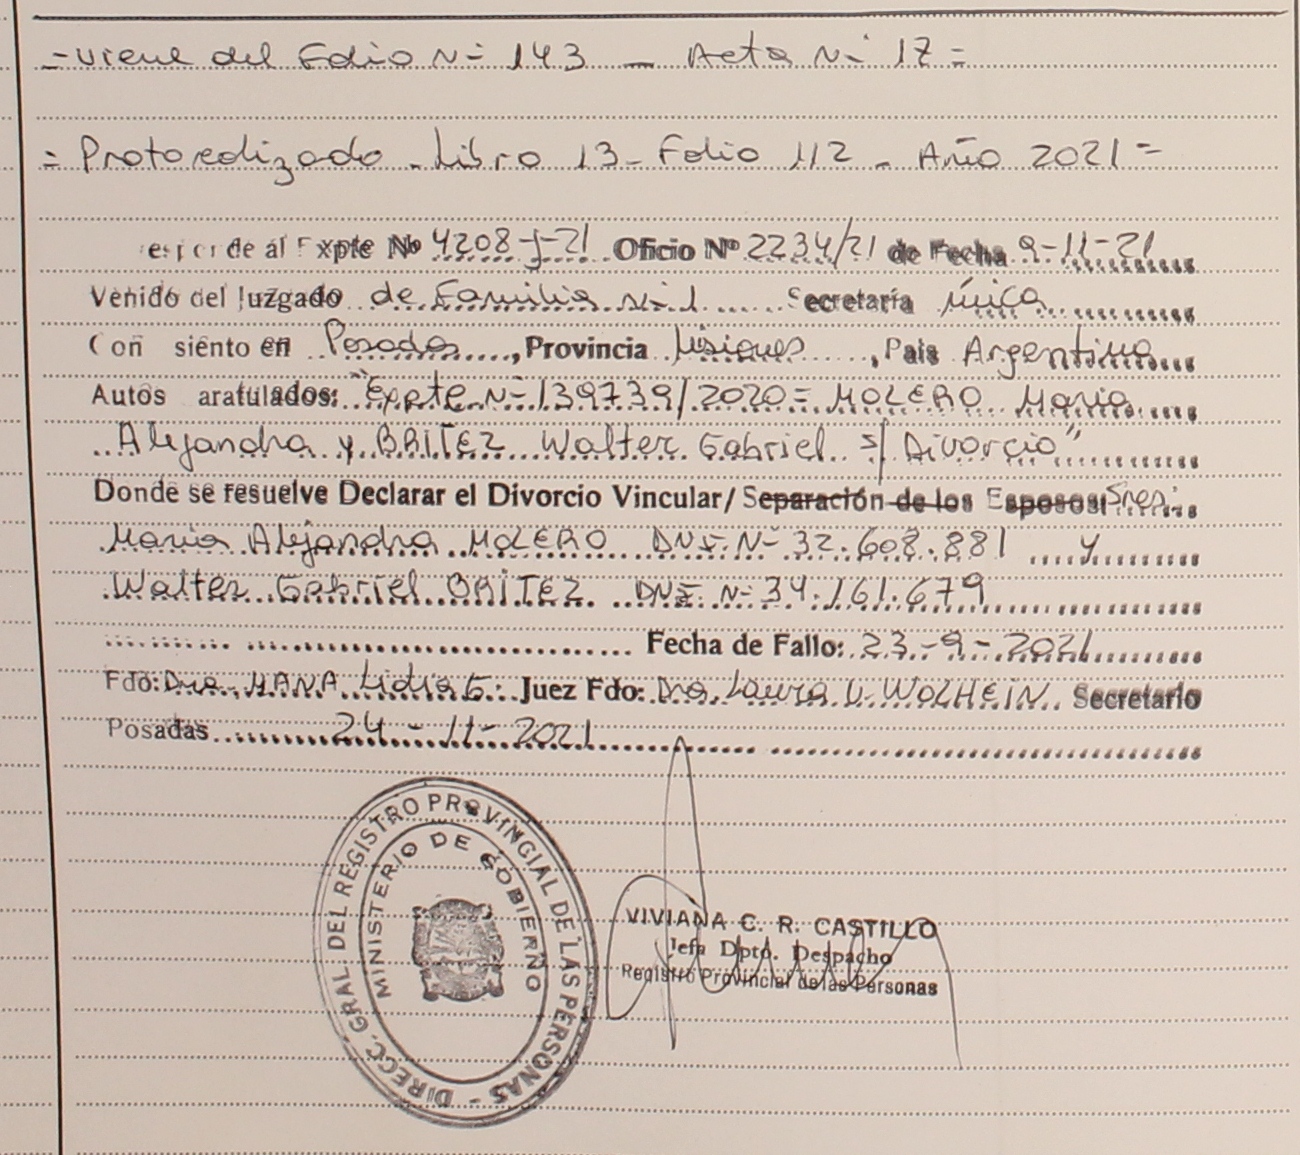 =Viene del Folio Nº 143 - Acta Nº 17=
=Protocolizado - Libro 13 - Folio 112 - Año 2021=
de al Expte Nº 4208-J-21 Oficio Nº 2234/21 de Fecha 9-11-21
Venido del Juzgado de Familia Nº 1 Secretaría única
Con siento en Posadas, Provincia Misiones, País Argentina
Autos aratulados: "Expte Nº 139739/2020= MOLERO Maria
Alejandra y BRITEZ Walter Gabriel s/ Divorcio"
Donde se resuelve Declarar el Divorcio Vincular/ Separación de los Esposos: Sres:
Maria Alejandra MOLERO DNI Nº 32.608.881 y
Walter Gabriel BRITEZ DNI Nº 34.161.679
Fecha de Fallo: 23-9-2021
Fdo: Dra. Lidia E. Juez Fdo: Dra. Laura V. WOLHEIN. Secretario
Posadas 24-11-2021
DIRECC. GRAL. DEL REGISTRO PROVINCIAL DE LAS PERSONAS -
MINISTERIO DE GOBIERNO
VIVIANA C. R. CASTILLO
Jefa Dpto. Despacho
Registro Provincial de las Personas